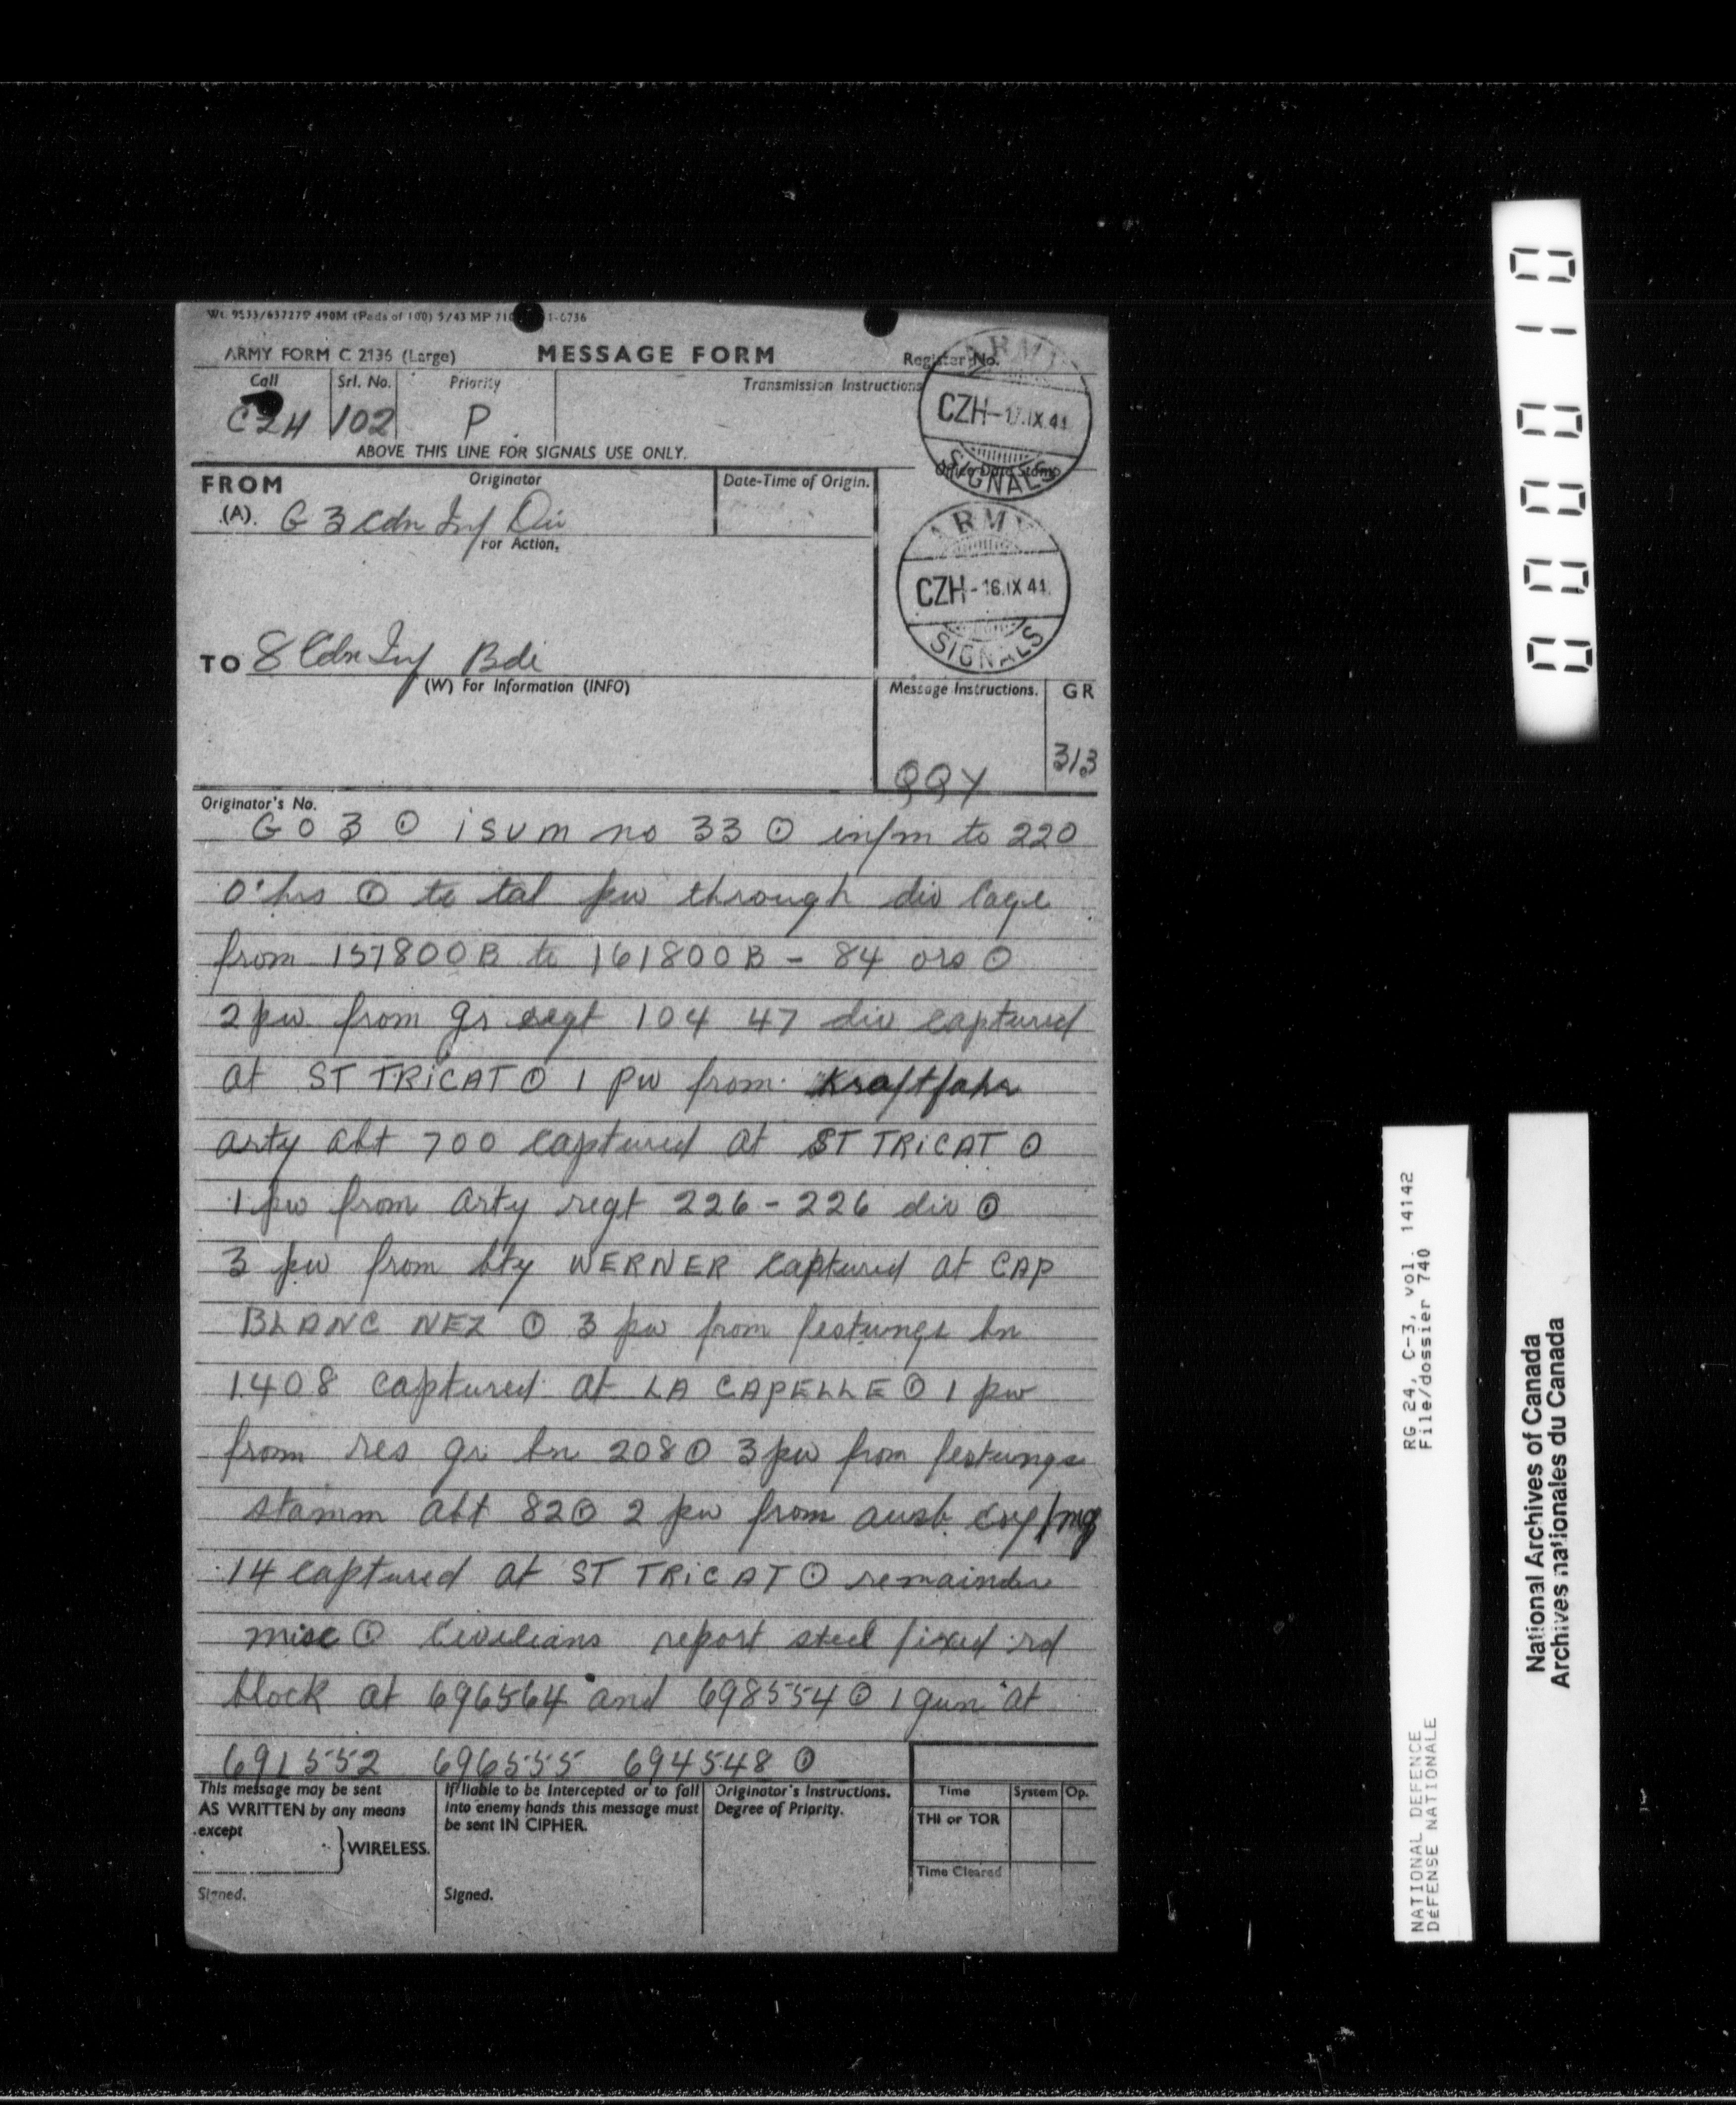 Wt. 9533/637279 490M (Pads of 100) 5/43 MP 71 1-6736
ARMY FORM C 2136 (Large) MESSAGE FORM Register No.
Call Srl. No. Priority Transmission Instructions
CZH 102 P
ABOVE THIS LINE FOR SIGNALS USE ONLY.
ARMY
CZH-17.IX.44
SIGNALS
Office Date Stamp
FROM Originator Date-Time of Origin.
(A). G 3 Cdn Inf Div
For Action.
ARMY
CZH-16.IX 44.
SIGNALS
TO 8 Cdn Inf Bde
(W) For Information (INFO)
Message Instructions. GR
QQY 313
Originator's No.
GO 3 ⊙ isum no 33 ⊙ infm to 220
0 hrs ⊙ to tal pw through div cage
from 151800B to 161800B - 84 ors ⊙
2 pw from gr regt 104 47 div captured
at ST TRICAT ⊙ 1 pw from Kraftfahr
arty abt 700 captured at ST TRICAT ⊙
1 pw from arty regt 226-226 div ⊙
3 pw from bty WERNER captured at CAP
BLANC NEZ ⊙ 3 pw from festungs bn
1408 captured at LA CAPELLE ⊙ 1 pw
from res gr bn 208 ⊙ 3 pw from festungs
stamm abt 82 ⊙ 2 pw from ausb coy/mg
14 captured at ST TRICAT ⊙ remainder
misc ⊙ Civilians report steel fixed rd
block at 696564 and 698554 ⊙ 1 gun at
691552 696555 694548 ⊙
This message may be sent AS WRITTEN by any means except } WIRELESS.
Signed.
If liable to be intercepted or to fall into enemy hands this message must be sent IN CIPHER.
Signed.
Originator's Instructions. Degree of Priority.
Time System Op.
THI or TOR
Time Cleared
0 1 0 0 0 0
RG 24, C-3, vol. 14142
File/dossier 740
NATIONAL DEFENCE
DÉFENSE NATIONALE
National Archives of Canada
Archives nationales du Canada